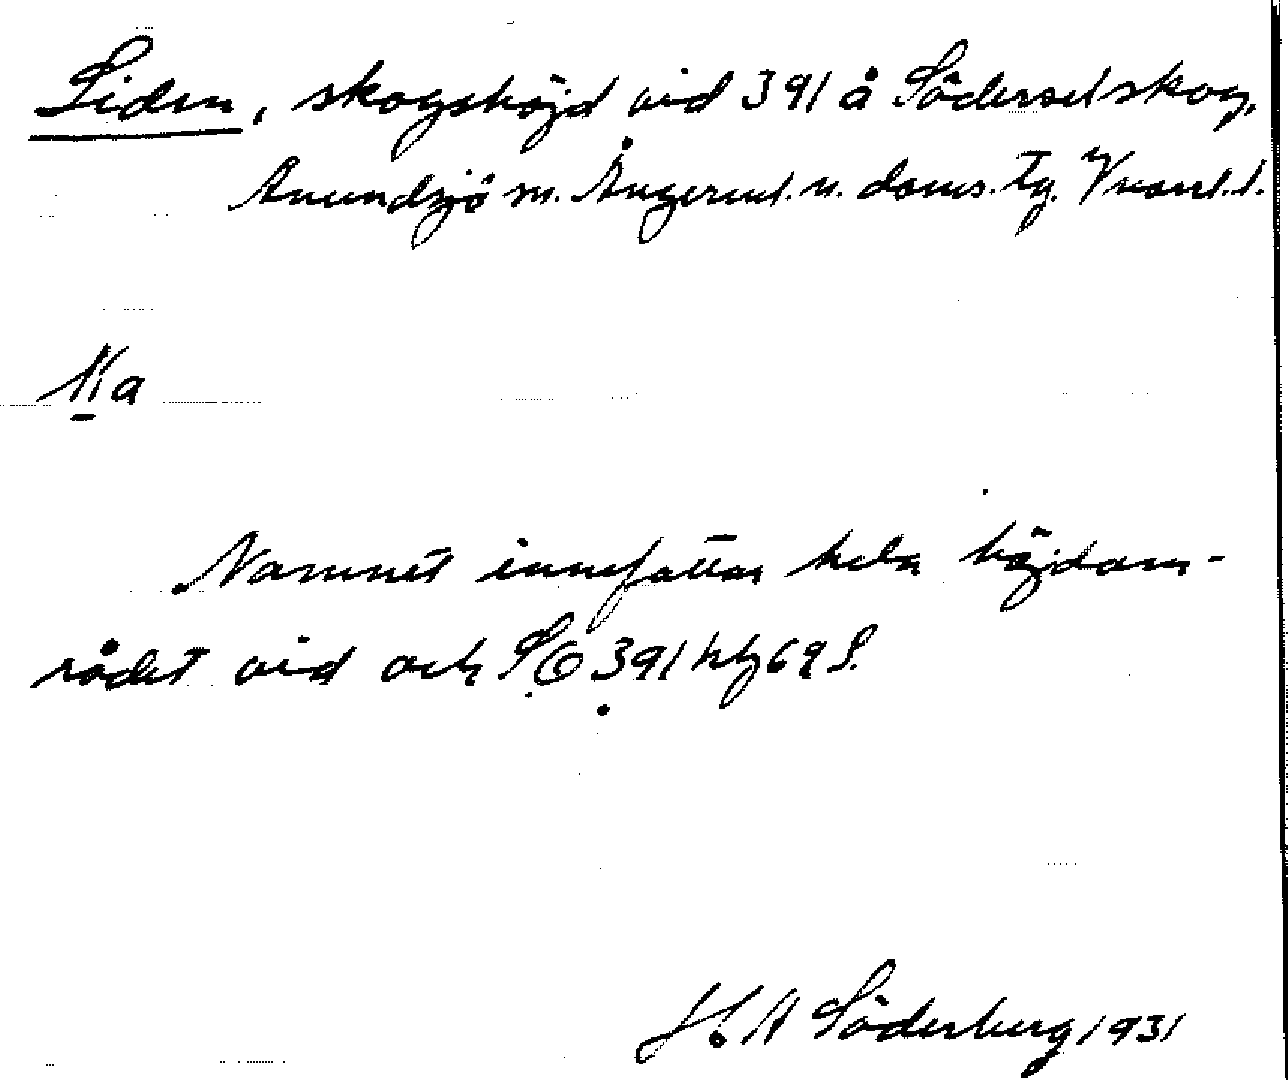 Liden, skogshöjd vid 391 å Söderselskog,
Anundsjö sn. Ångerml. n. doms. tg. Vnorrl. l.
IIa
Namnet innefattar hela höjdom-
rådet vid och SO 391 69 S.
H. A Söderberg 1931